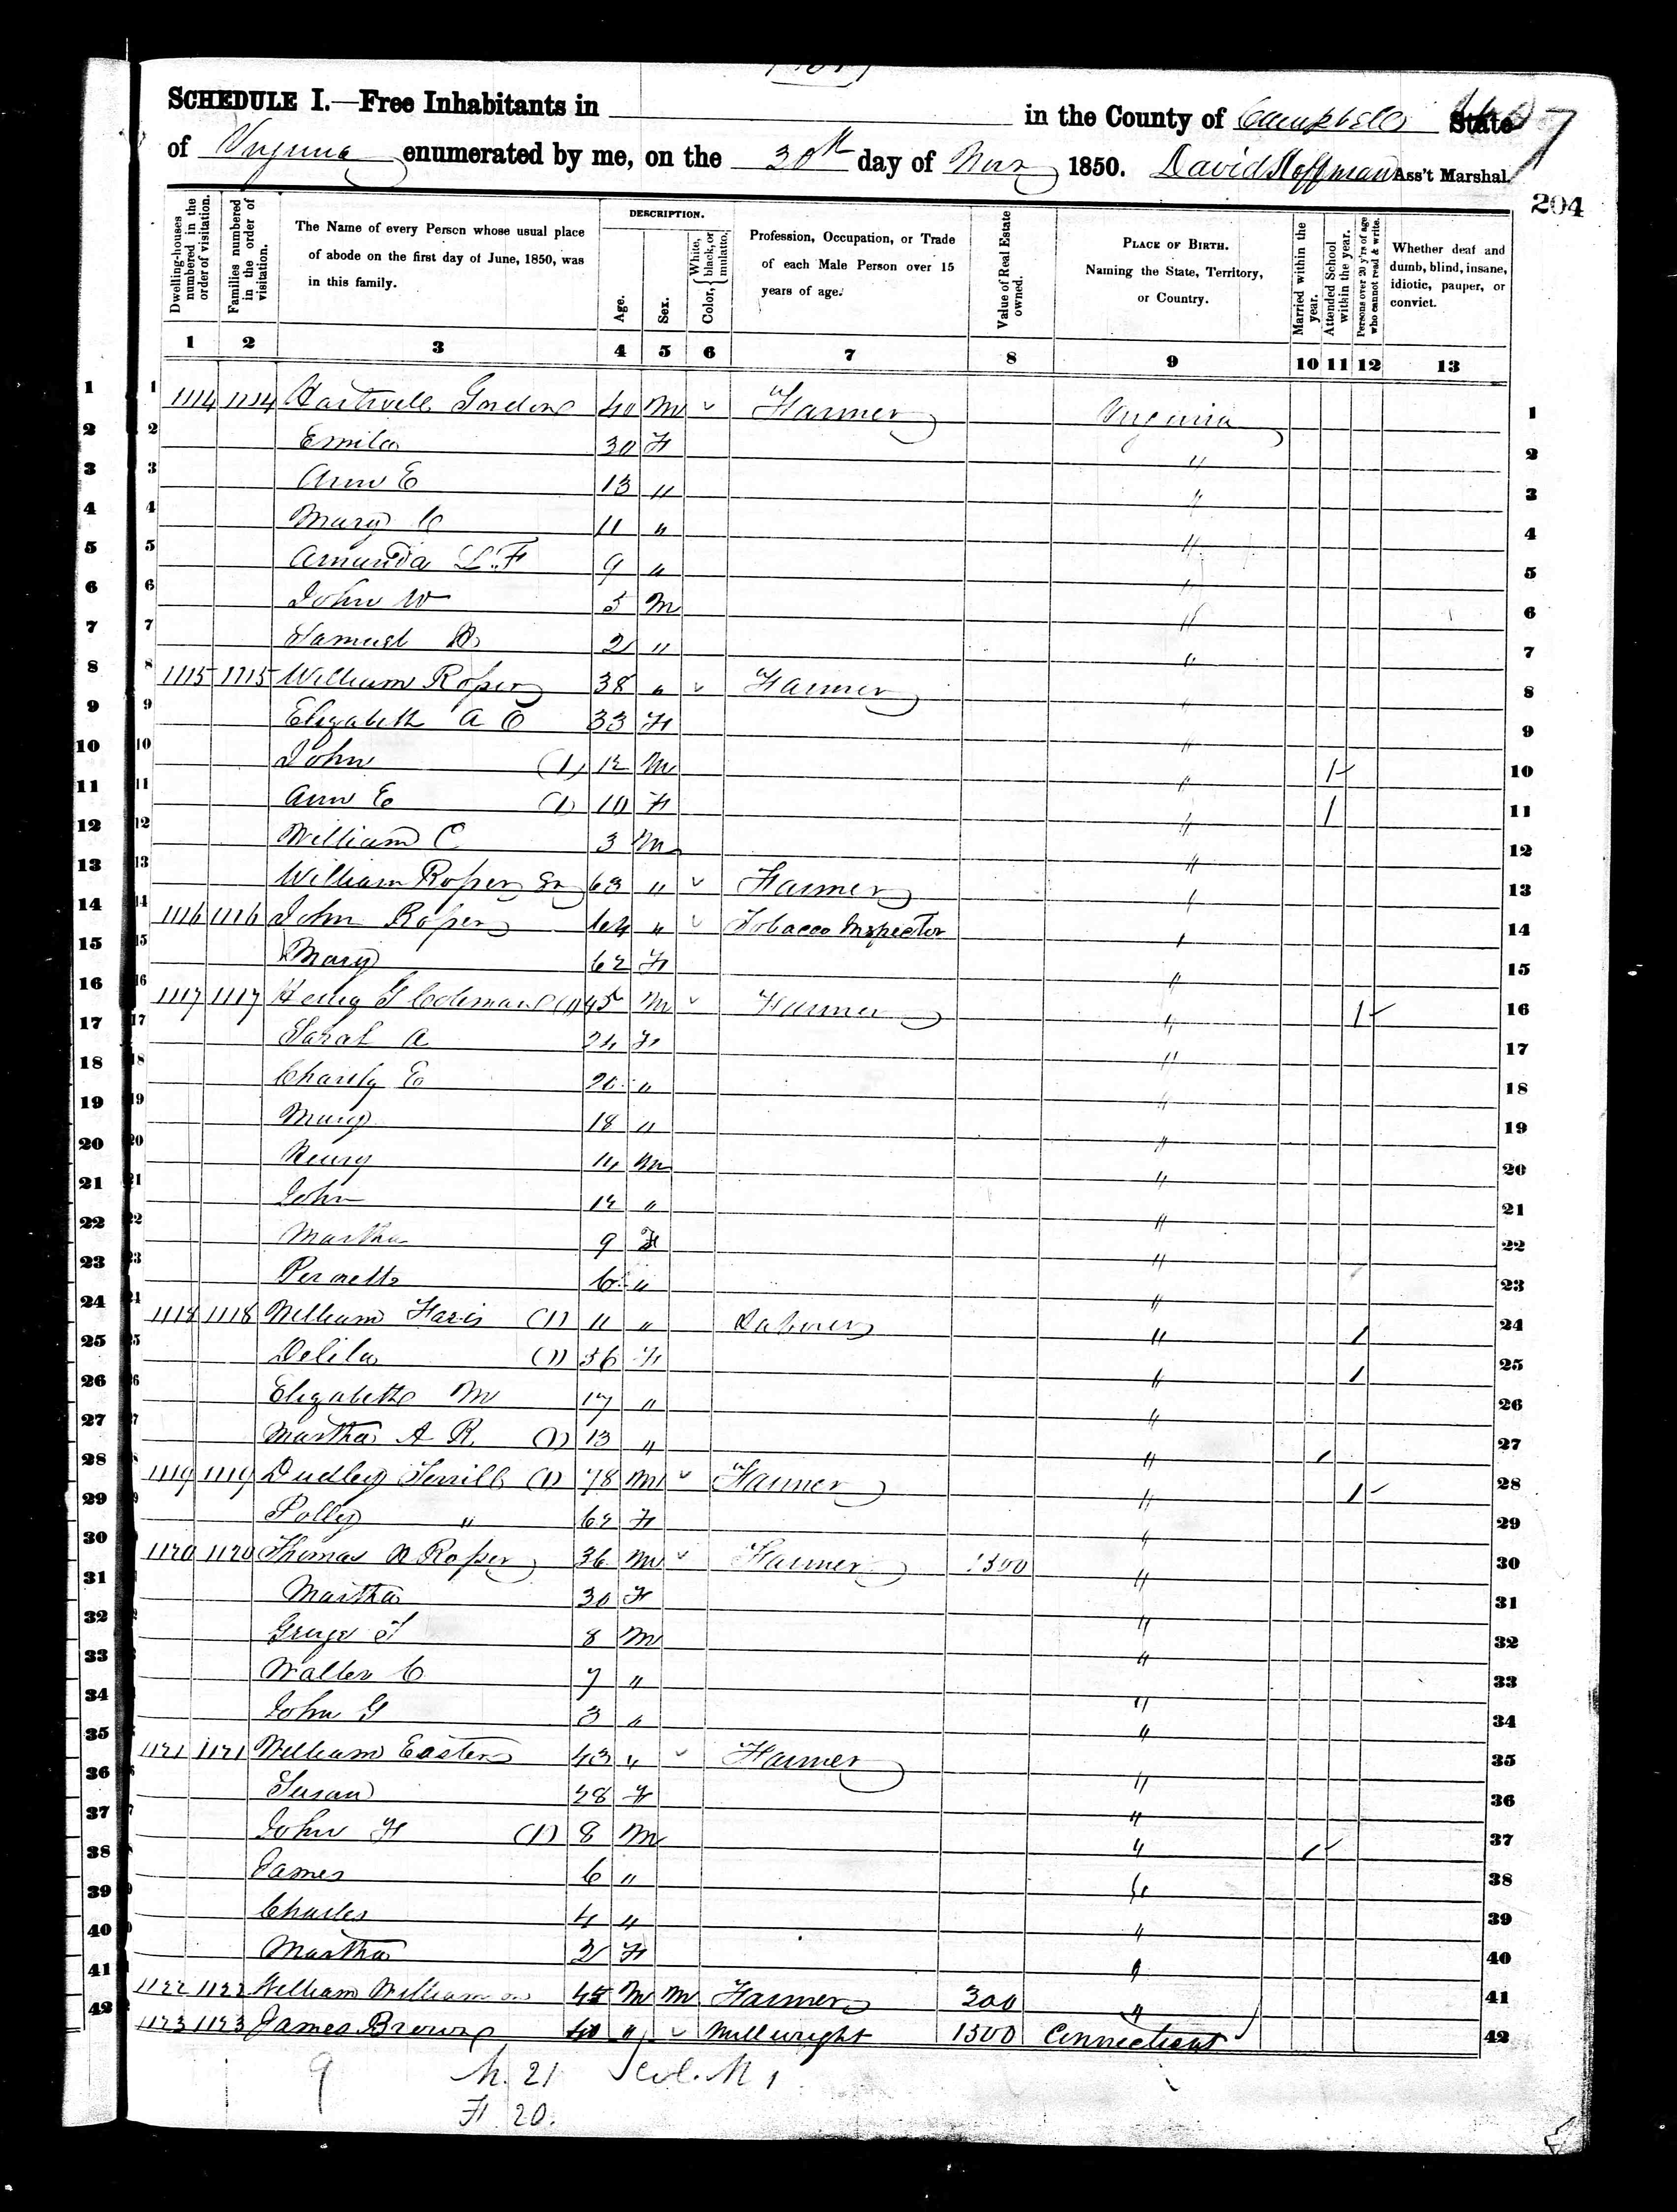 SCHEDULE I.—Free Inhabitants in in the County of Campbell State
of Virginia enumerated by me, on the 30th day of Nov 1850. David Hoffman Ass't Marshal.
204
Dwelling-houses numbered in the order of visitation.
Families numbered in the order of visitation.
The Name of every Person whose usual place of abode on the first day of June, 1850, was in this family.
DESCRIPTION.
Age.
Sex.
Color, { White, black, or mulatto.
Profession, Occupation, or Trade of each Male Person over 15 years of age.
Value of Real Estate owned.
PLACE OF BIRTH. Naming the State, Territory, or Country.
Married within the year.
Attended School within the year.
Persons over 20 y'rs of age who cannot read & write.
Whether deaf and dumb, blind, insane, idiotic, pauper, or convict.
1 2 3 4 5 6 7 8 9 10 11 12 13
1 1 1114 1114 Hartwell 40 M ✓ Farmer Virginia 1
2 2 Emila 30 F " 2
3 3 Ann E 13 " " 3
4 4 Mary C 11 " " 4
5 5 Amanda L. F 9 " " 5
6 6 John W 5 M " 6
7 7 Samuel 2 " " 7
8 8 1115 1115 William Roper 38 " ✓ Farmer " 8
9 9 Elizabeth A C 33 F " 9
10 10 John (1) 12 M " 1✓ 10
11 11 Ann E (1) 10 F " 1 11
12 12 William C 3 M " 12
13 13 William Roper Sr 63 " ✓ Farmer " 13
14 14 1116 1116 John Roper 64 " ✓ Tobacco Inspector " 14
15 15 Mary 62 F " 15
16 16 1117 1117 Coleman (1) 45 M ✓ Farmer " 1✓ 16
17 17 Sarah A 24 F " 17
18 18 Charity E 20 " " 18
19 19 Mary 18 " " 19
20 20 Henry 14 M " 20
21 21 John 12 " " 21
22 22 Martha 9 F " 22
23 23 6 " " 23
24 24 1118 1118 William Faris (1) 11 " Laborer " 1 24
25 25 Delila (1) 56 F " 1 25
26 26 Elizabeth M 17 " " 26
27 27 Martha A R (1) 13 " " 1 27
28 1119 1119 Dudley Terrill (1) 78 M ✓ Farmer " 1✓ 28
29 Polly " 62 F " 29
30 1120 1120 Thomas Roper 36 M ✓ Farmer 1500 " 30
31 Martha 30 F " 31
32 George T 8 M " 32
33 Walter C 7 " " 33
34 John G 3 " " 34
35 1121 1121 William Easter 43 " ✓ Farmer " 35
36 Susan 28 F " 36
37 John F (1) 8 M " 1✓ 37
38 James 6 " " 38
39 Charles 4 " " 39
40 Martha 2 F " 40
41 1122 1122 William Williamson 45 M M Farmer 300 " 41
42 1123 1123 James Brown 40 " ✓ Millwright 1500 Connecticut 42
9 M. 21 Col. M 1
F 20.